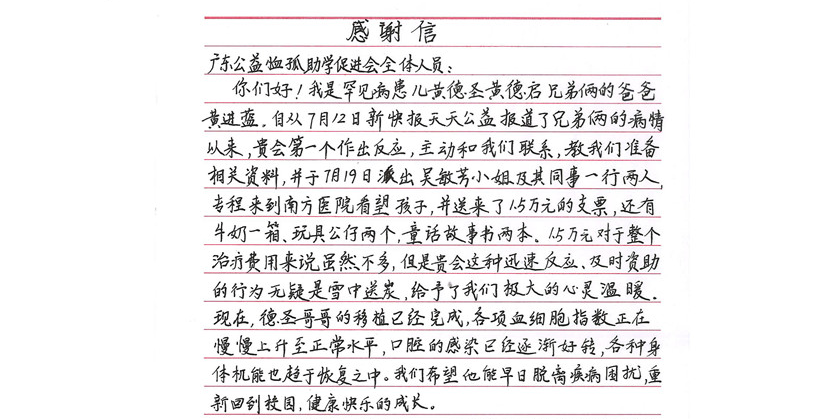 感谢信
广东公益恤孤助学促进会全体人员:
你们好!我是罕见病患儿黄德圣黄德君兄弟俩的爸爸
黄进蓝。自从7月12日新快报天天公益报道了兄弟俩的病情
以来,贵会第一个作出反应,主动和我们联系,教我们准备
相关资料,并于7月19日派出吴敏芳小姐及其同事一行两人,
专程来到南方医院看望孩子,并送来了1.5万元的支票,还有
牛奶一箱、玩具公仔两个,童话故事书两本。1.5万元对于整个
治疗费用来说虽然不多,但是贵会这种迅速反应、及时资助
的行为无疑是雪中送炭,给予了我们极大的心灵温暖。
现在,德圣哥哥的移植已经完成,各项血细胞指数正在
慢慢上升至正常水平,口腔的感染已经逐渐好转,各种身
体机能也趋于恢复之中。我们希望他能早日脱离疾病困扰,重
新回到校园,健康快乐的成长。